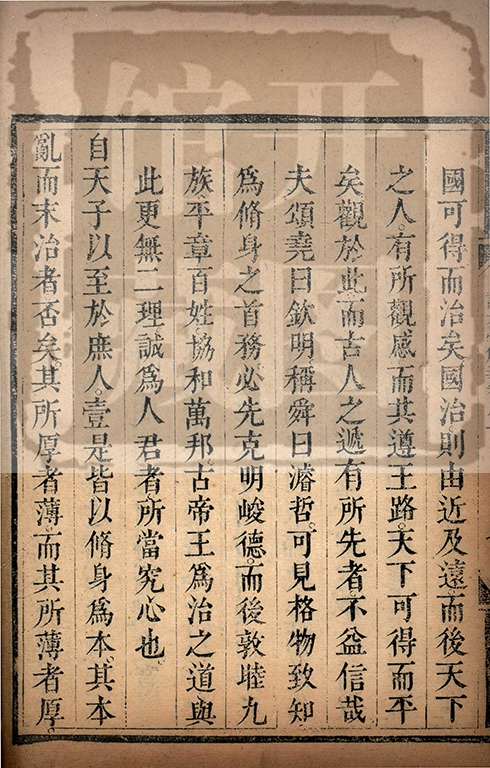 國可得而治矣國治則由近及遠而後天下
之人有所觀感而其遵王路天下可得而平
矣觀於此而古人之遞有所先者不益信哉
夫頌堯曰欽明稱舜曰濬哲可見格物致知
為脩身之首務必先克明峻德而後敦睦九
族平章百姓協和萬邦古帝王為治之道與
此更無二理誠為人君者所當究心也
自天子以至於庶人壹是皆以脩身為本其本
亂而末治者否矣其所厚者薄而其所薄者厚